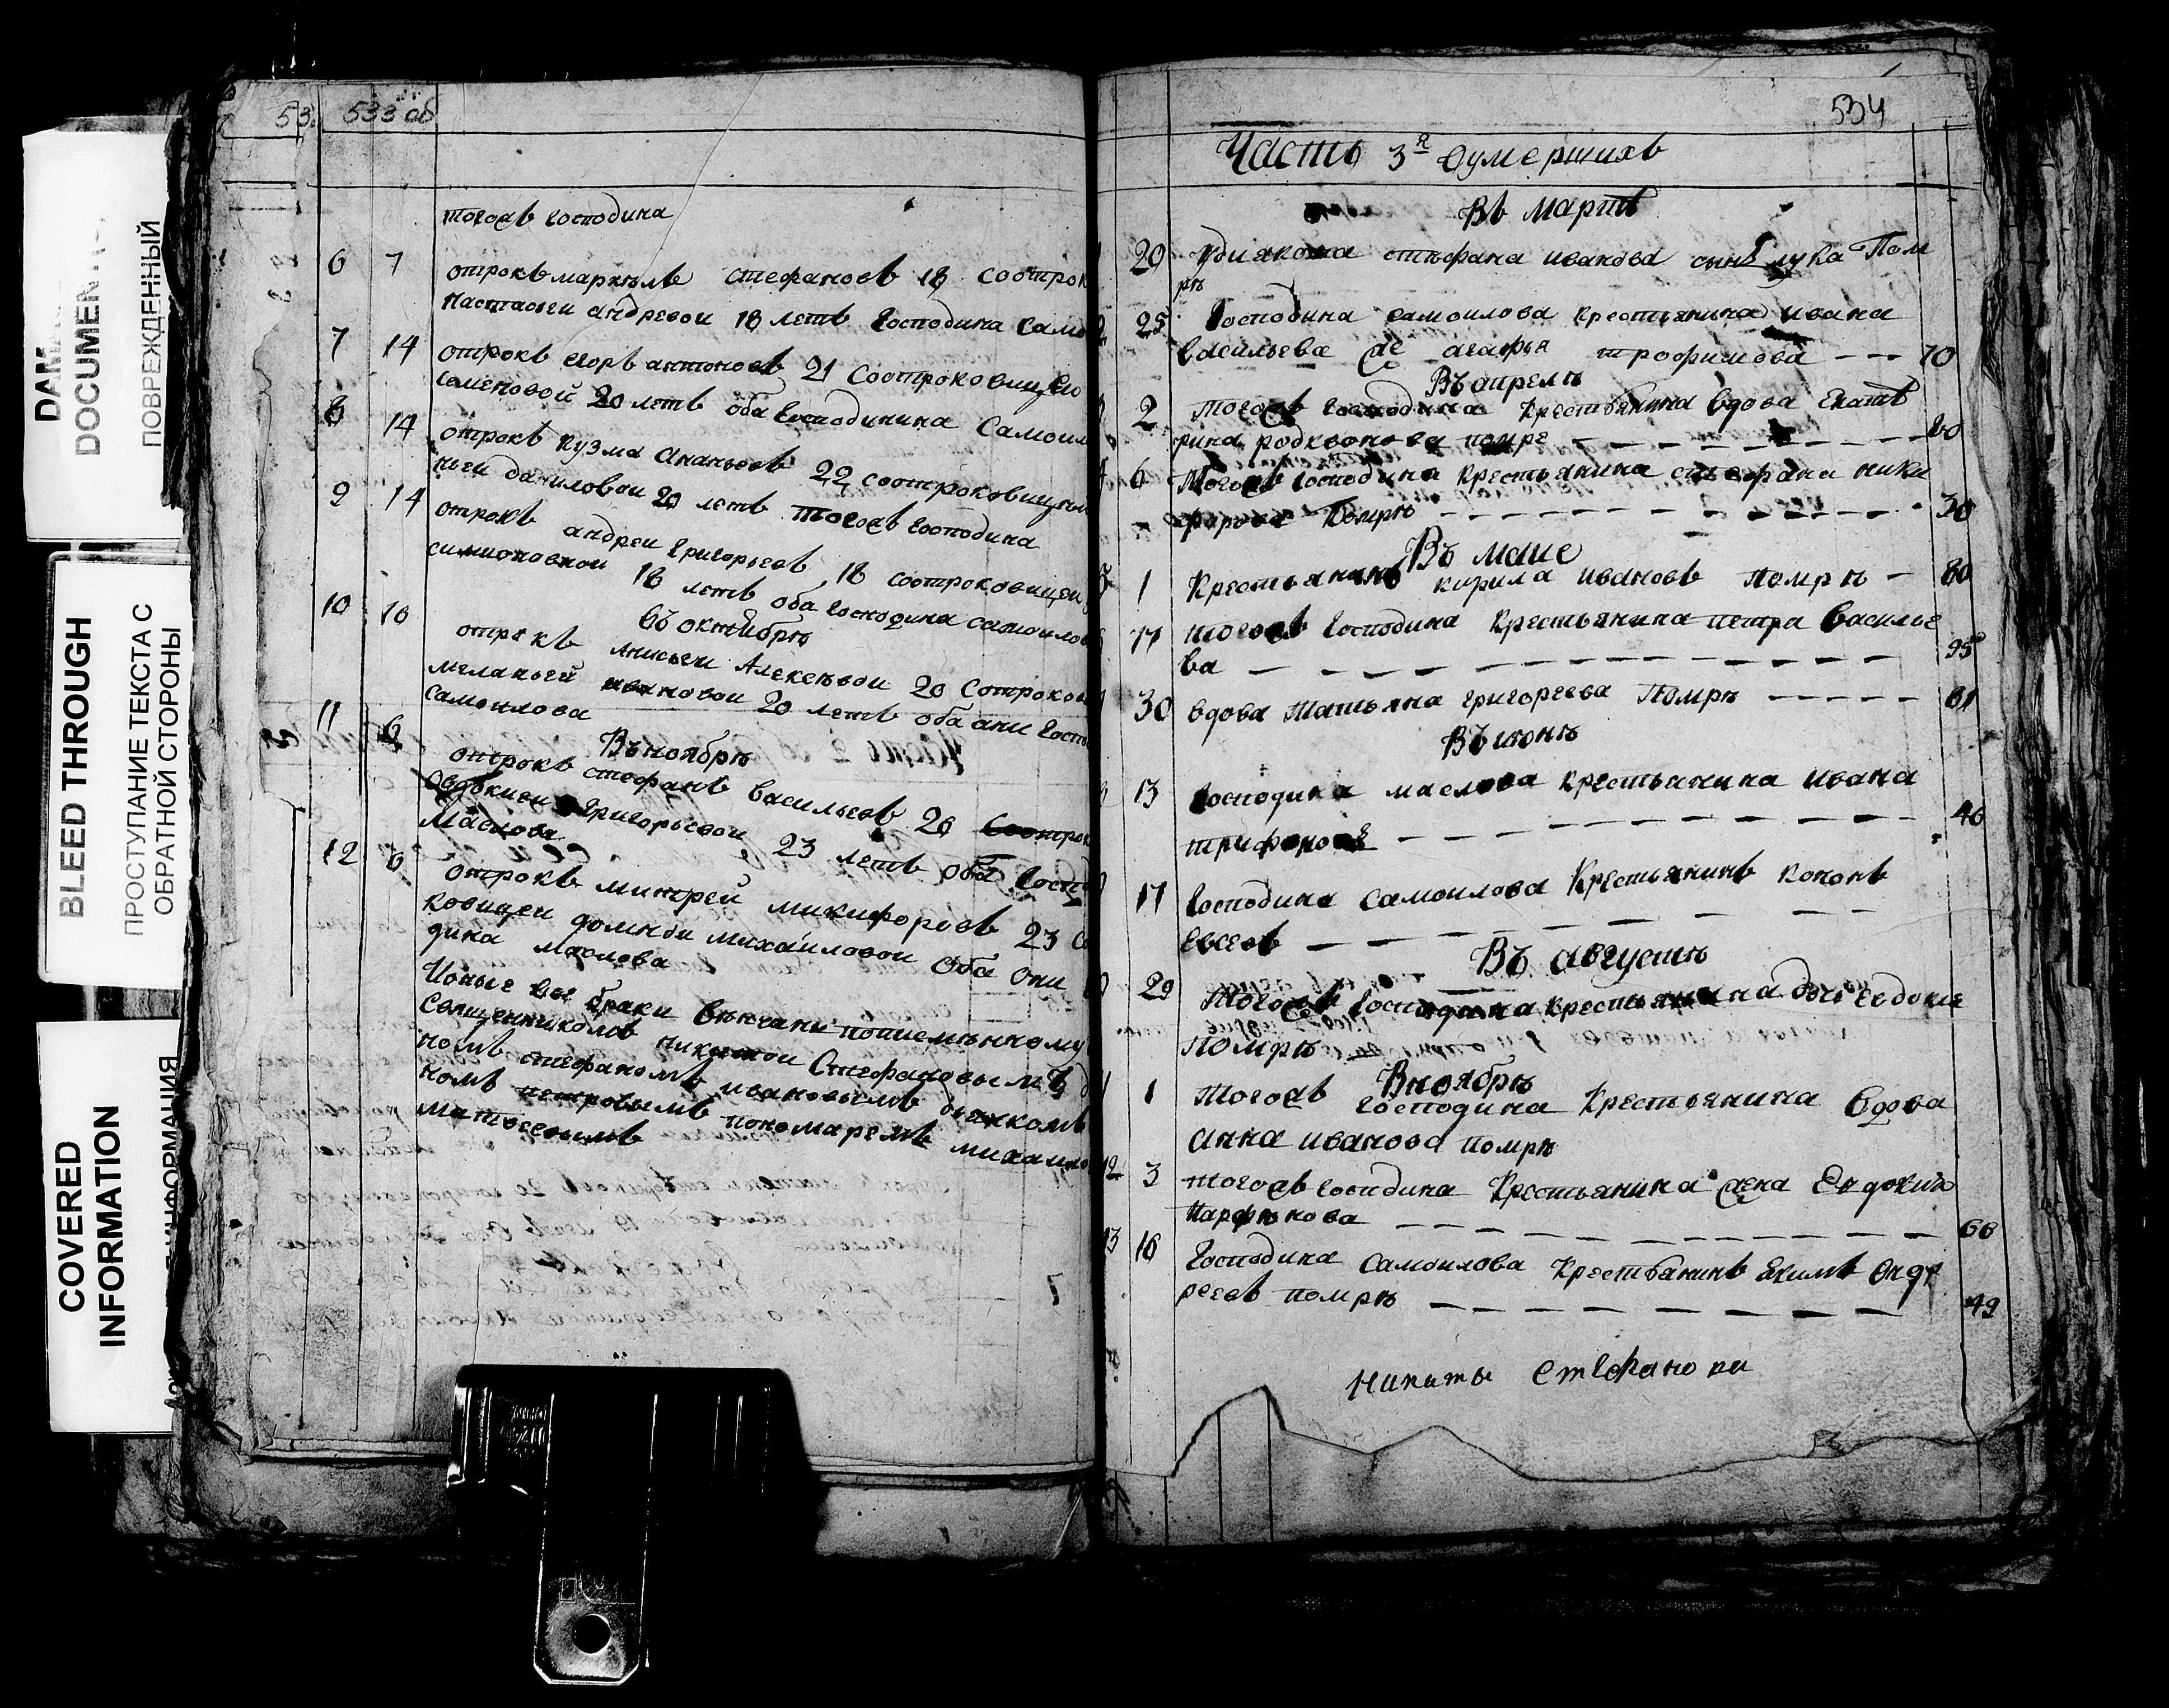 DAM
DOCUMEN
ПОВРЕЖДЕННЫЙ
BLEED THROUGH
ПРОСТУПАНИЕ ТЕКСТА С
ОБРАТНОЙ СТОРОНЫ
COVERED
INFORMATION
ИНФОРМАЦИЯ
53 533 об
тогожъ господина
6 7 отрокъ маркелъ стефановъ 18 соотрок
настасьеи андревои 18 летъ господина само
7 14 отрокъ егоръ антоновъ 21 соотроковицею
семеновой 20 летъ оба господинина Самоил
8 14 отрокъ кузма Ананьевъ 22 соотроковицею
даниловои 20 летъ тогожъ господина
9 14 отрокъ андреи григорьевъ 18 соотроковицеи
симионовнои 18 летъ оба господина самоилов
въ октябрѣ
10 10 отрокъ Анисьеи Алексѣвои 20 Сотроков
меланьей ивановои 20 летъ оба ани госп
самоилова
Въ ноябрѣ
11 6 отрокъ стефанъ васильевъ 26 Соотрок
Григорьевои 23 летъ оба госп
Маслова
12 6 отрокъ митрей микифоровъ 23 со
ковицеи домнои михаиловои Оба они
дина маслова
Ионые все браки венчаны
Священникомъ никитои Стефановымъ д
номъ стефаномъ ивановымъ дьячкомъ
номъ петровымъ пономаремъ михаило
матвеевымъ
534
Часть 3я Оумершихъ
Въ мартѣ
20 У дияконa стефана иванова сынъ лука Пом
рѣ
25 Господина самоилова крестьянина ивана
васильева же агафья трофимова 70
Въ апрелѣ
2 Тогожъ господина крестьянина вдова Екате
рина родионова помре 60
6 Тогожъ господина крестьянина стефана ники
Помрѣ 30
Въ маие
1 Крестьянинъ кирила ивановъ Помрѣ 80
17 тогожъ господина крестьянина петра василье
ва 95
30 вдова Татьяна григорьева Помрѣ 61
Въ июнѣ
13 господина маслова крестьянина ивана
46
17 господина самоилова Крестьянинъ кононъ
Евсевъ
Въ августѣ
29 Тогожъ господина крестьянина дочь евдокие
Помрѣ
Вноябрѣ
1 Тогожъ господина Крестьянина вдова
анна иванова помрѣ
12 3 тогожъ господина Крестьянина жена Евдокия
Парфѣнова 60
13 16 Господина Самоилова Крестьянинъ Екимъ Онд
реевъ помрѣ 49
Никиты Стефанова